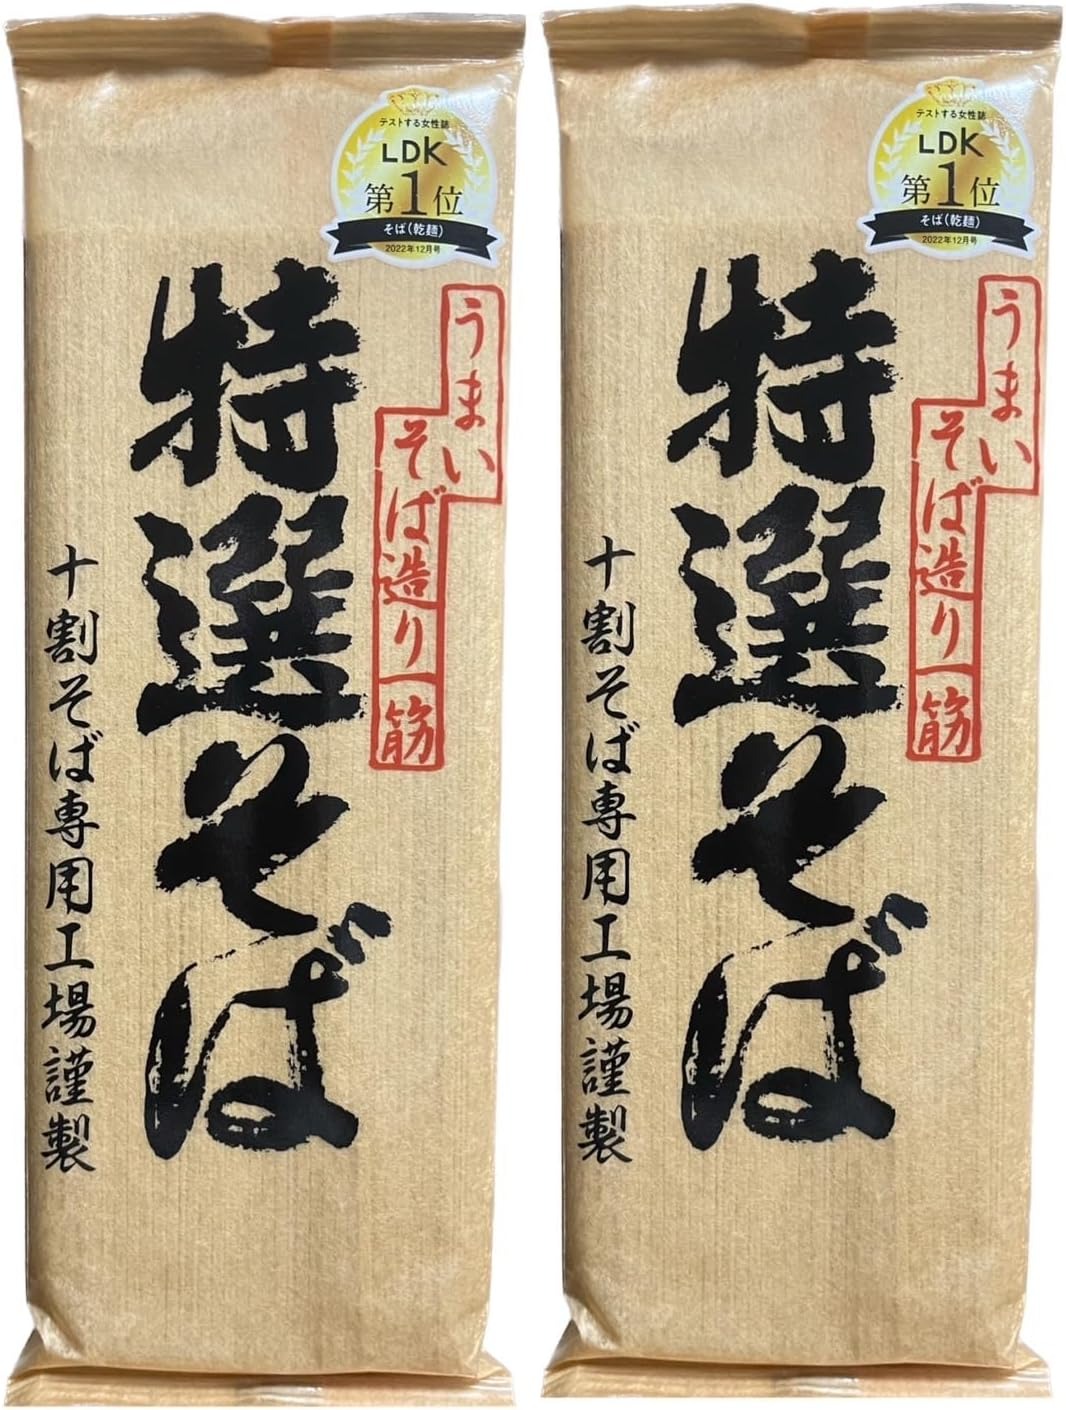 テストする女性誌
LDK
第1位
そば(乾麺)
2022年12月号
うまい
そば造り一筋
特選そば
十割そば専用工場謹製
テストする女性誌
LDK
第1位
そば(乾麺)
2022年12月号
うまい
そば造り一筋
特選そば
十割そば専用工場謹製